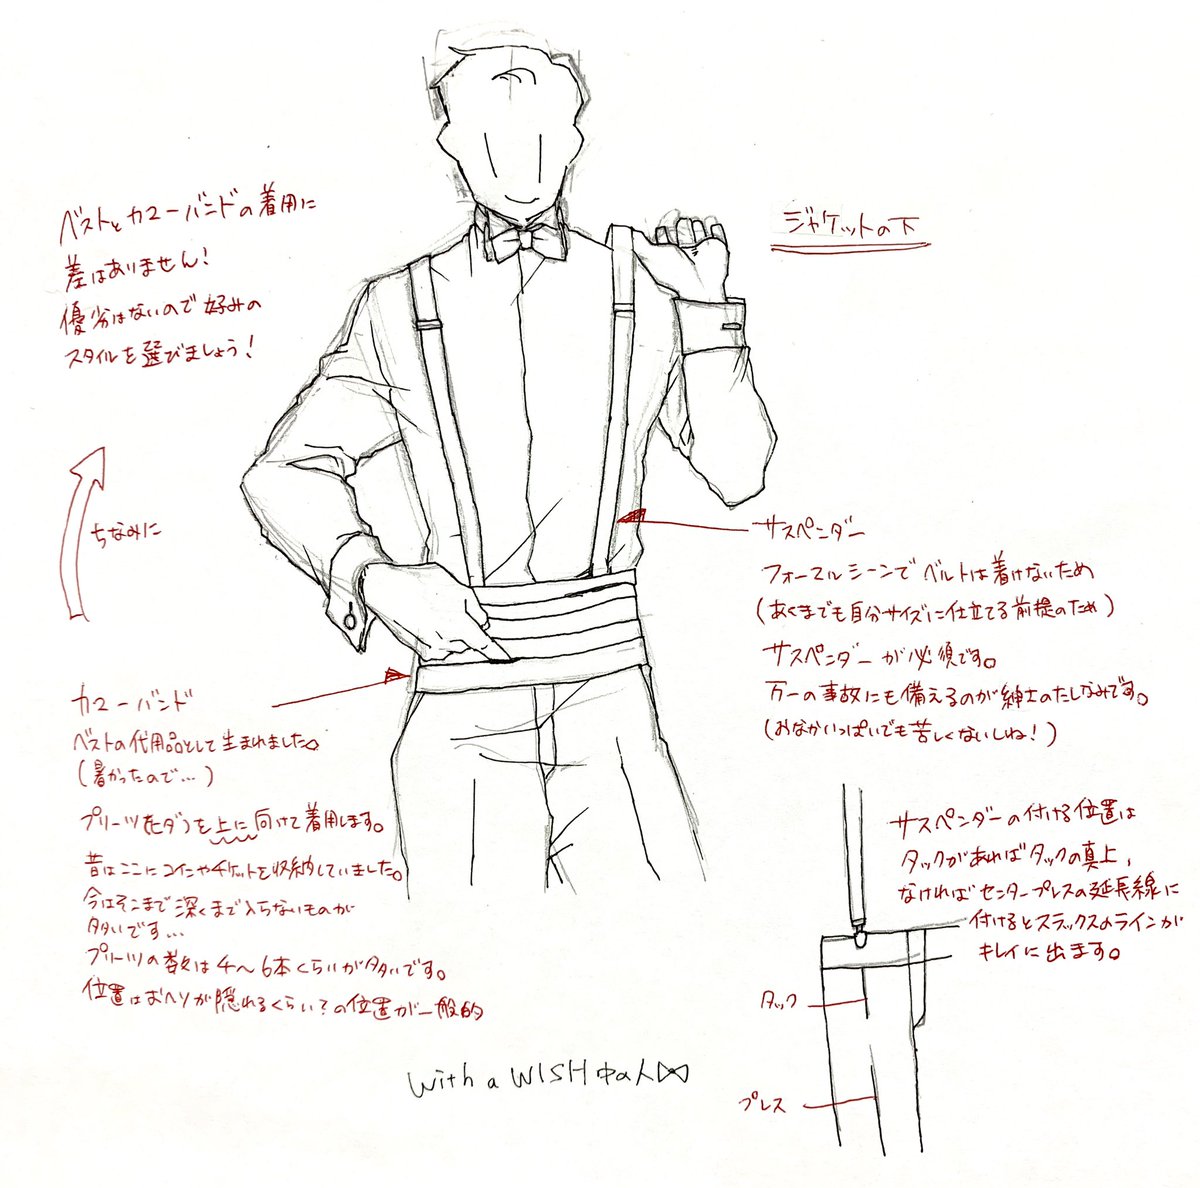 ジャケットの下
ベストとカマーバンドの着用に
差はありません！
優劣はないので好みの
スタイルを選びましょう！
ちなみに
サスペンダー
フォーマルシーンでベルトは着けないため
(あくまでも自分サイズに仕立てる前提のため)
サスペンダーが必須です。
万一の事故にも備えるのが紳士のたしなみです。
(おなかいっぱいでも苦しくないしね！)
カマーバンド
ベストの代用品として生まれました。
(暑かったので…)
プリーツ(ヒダ)を上に向けて着用します。
昔はここにコインやチケットを収納していました。
今はそこまで深くまで入らないものが
多いです…
プリーツの数は4〜6本くらいが多いです。
位置はおヘソが隠れるくらい？の位置が一般的
サスペンダーの付ける位置は
タックがあればタックの真上、
なければセンタープレスの延長線に
付けるとスラックスのラインが
キレイに出ます。
タック
プレス
with a WISH 中の人